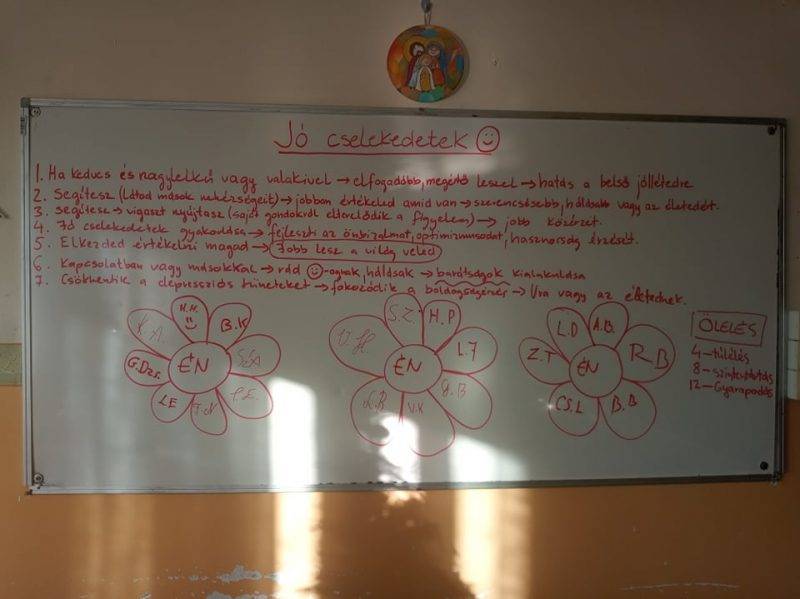 Jó cselekedetek
1. Ha kedves és nagylelkű vagy valakivel → elfogadóbb, megértő leszel → hatás a belső jóllétedre
2. Segítesz (látod mások nehézségeit) → jobban értékeled amid van → szerencsésebb, hálásabb vagy az életedért.
3. Segítesz → vigaszt nyújtasz (saját gondokról elterelődik a figyelem) → jobb közérzet.
4. Jó cselekedetek gyakorlása → fejleszti az önbizalmat, optimizmusodat, hasznosság érzését.
5. Elkezded értékelni magad → Jobb lesz a világ veled
6. Kapcsolatban vagy másokkal → rád -ognak, hálásak → barátságok kialakulása
7. Csökkentik a depressziós tüneteket → fokozódik a boldogságérzés → Ura vagy az életednek.
H.H.
K.A.
B.K
G.Dzs.
ÉN
LE
T.N
S.Z.
H.P
ÉN
L.J
V.K
L.D
A.B.
Z.T
ÉN
R B
CS.L
B.B
ÖLELÉS
4 – túlélés
8 – szintentartás
12 – Gyarapodás